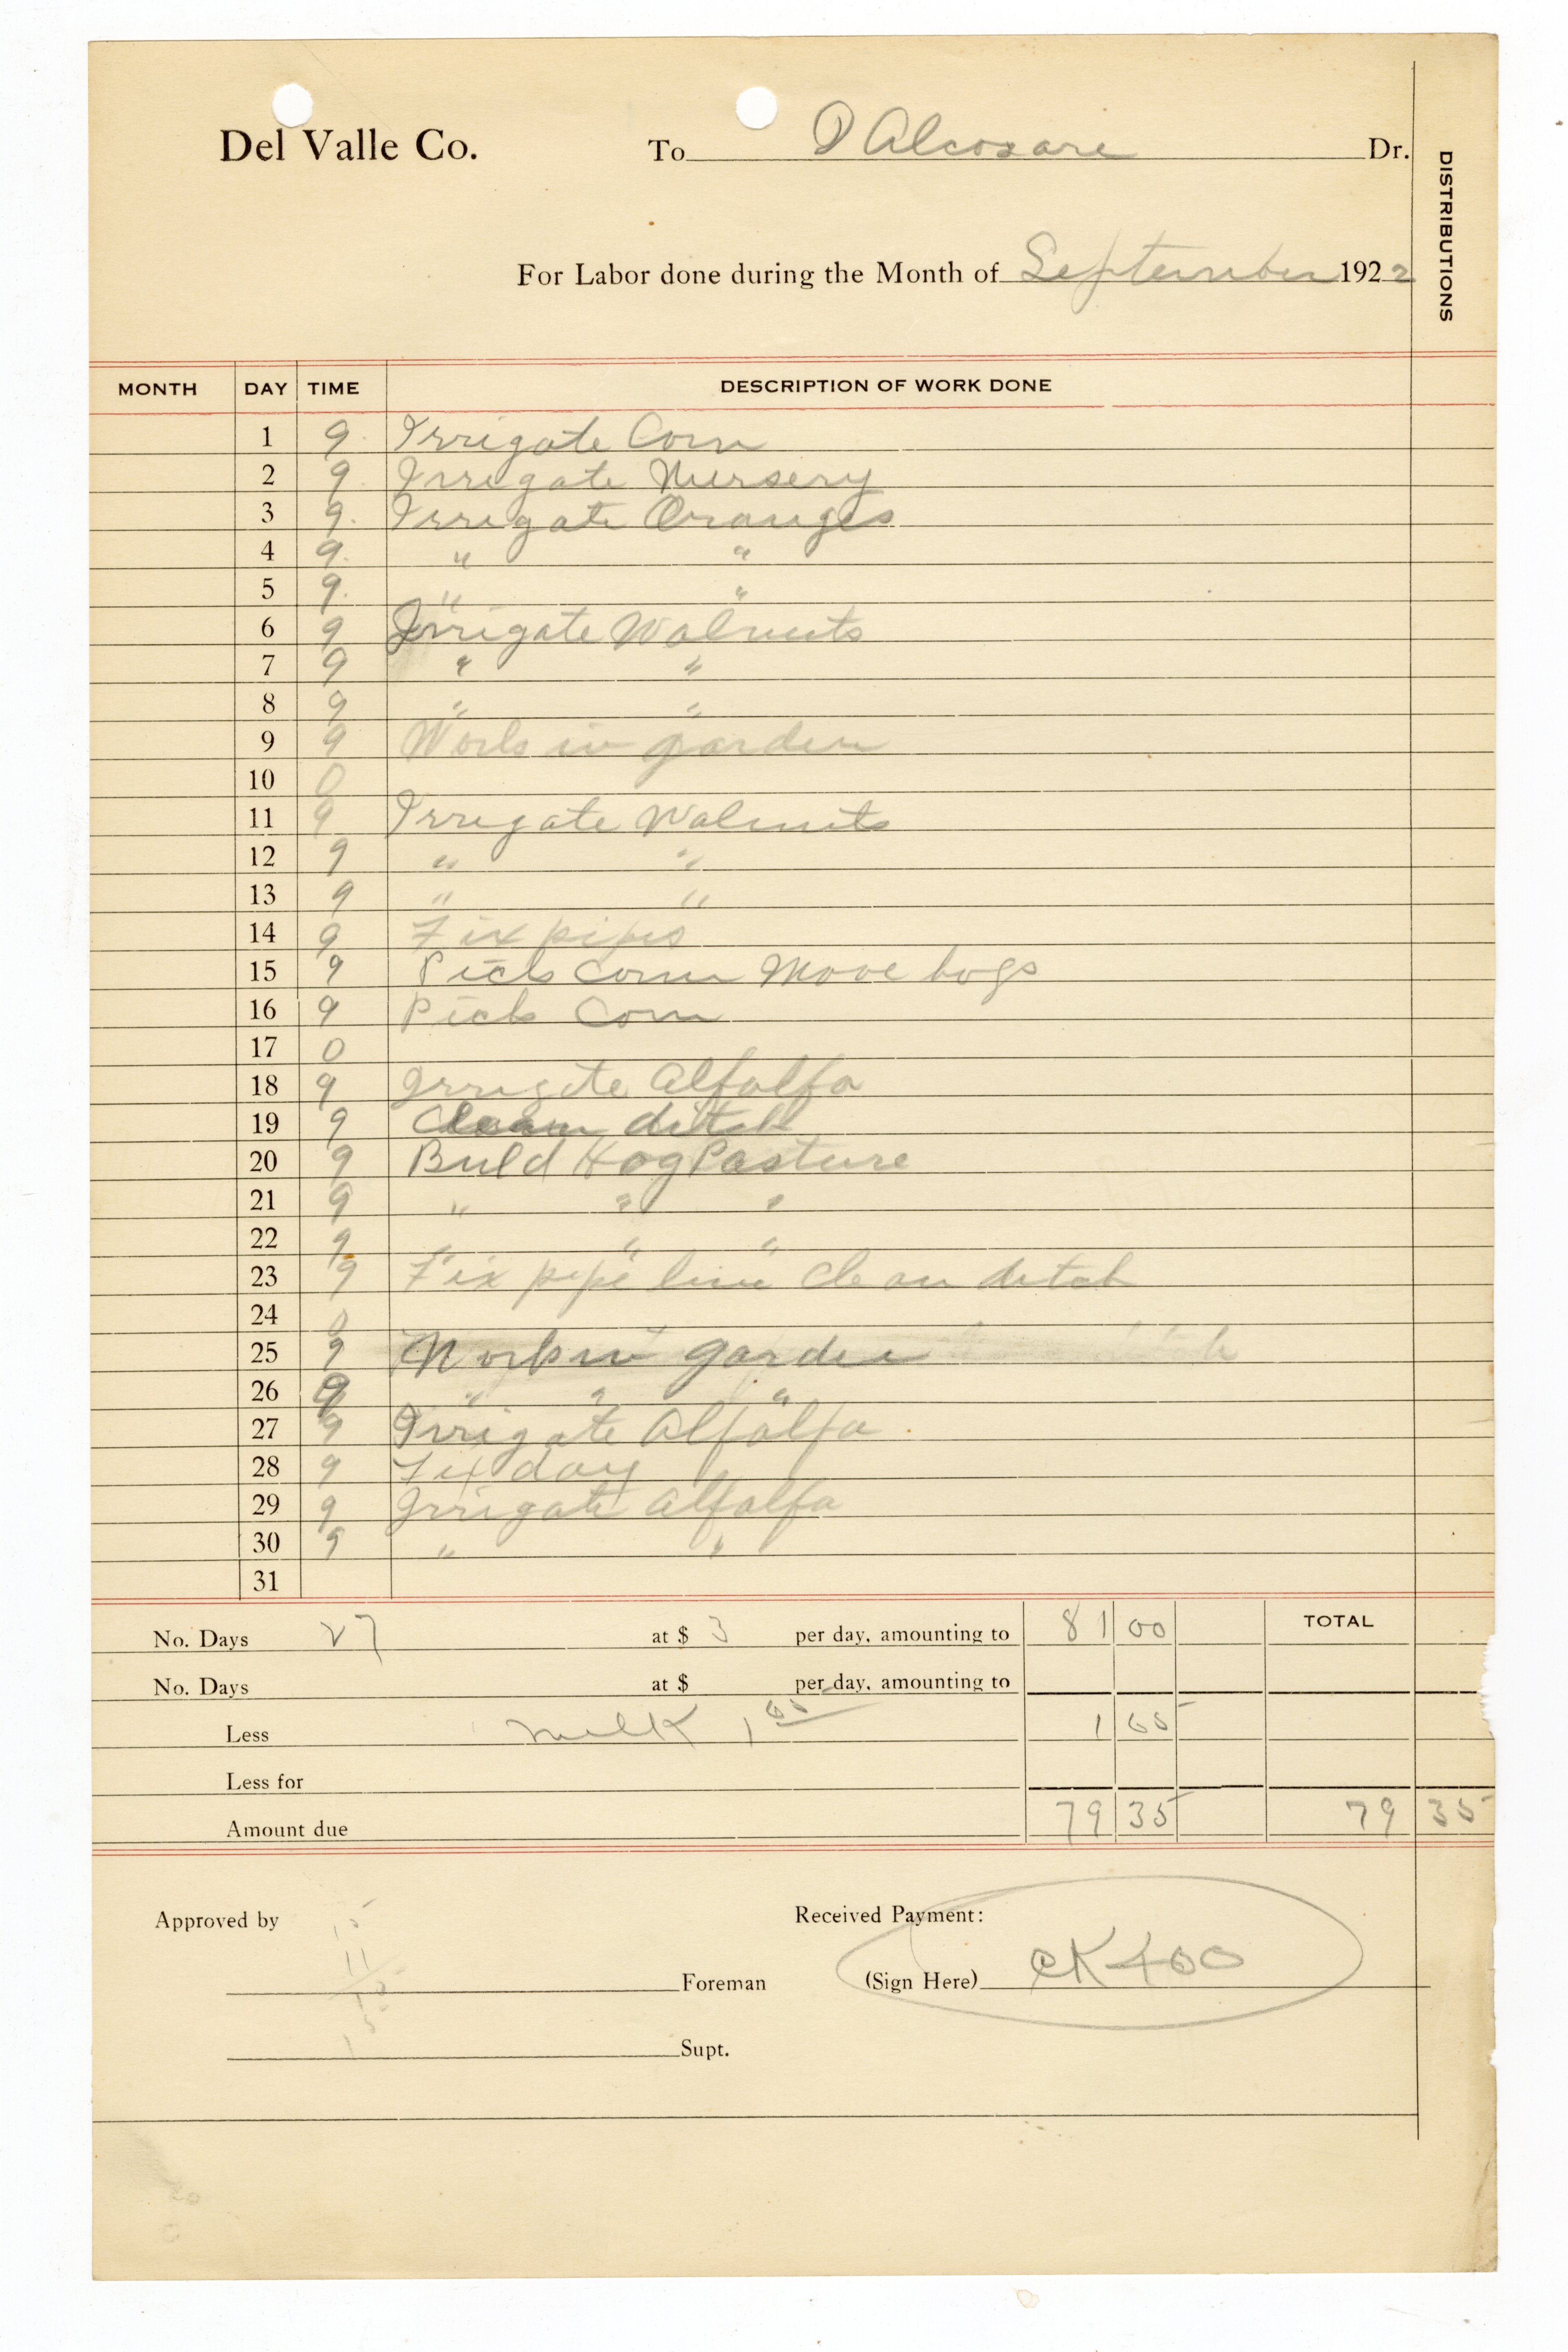 Del Valle Co. To P Alcosare Dr.
DISTRIBUTIONS
For Labor done during the Month of September 1922
MONTH DAY TIME DESCRIPTION OF WORK DONE
1 9 Irrigate Corn
2 9 Irrigate Nursery
3 9. Irrigate Oranges
4 9. " "
5 9. " "
6 9 Irrigate Walnuts
7 9 " "
8 9 " "
9 9 Work in garden
10 0
11 9 Irrigate Walnuts
12 9 " "
13 9 " "
14 9 Fix pipes
15 9 Pick Corn Move hogs
16 9 Pick Corn
17 0
18 9 Irrigate Alfalfa
19 9 Clean ditch
20 9 Buld Hog Pasture
21 9 " " "
22 9 " " "
23 9 Fix pipe line Clean ditch
24 0
25 9 Work in garden
26 9 " " "
27 9 Irrigate Alfalfa
28 9 Fix day
29 9 Irrigate Alfalfa
30 9 " "
31
No. Days 27 at $ 3 per day, amounting to 81 00 TOTAL
No. Days at $ per day, amounting to
Less milk 1 65
Less for
Amount due 79 35 79 35
Approved by Received Payment:
Foreman (Sign Here) CK 400
Supt.